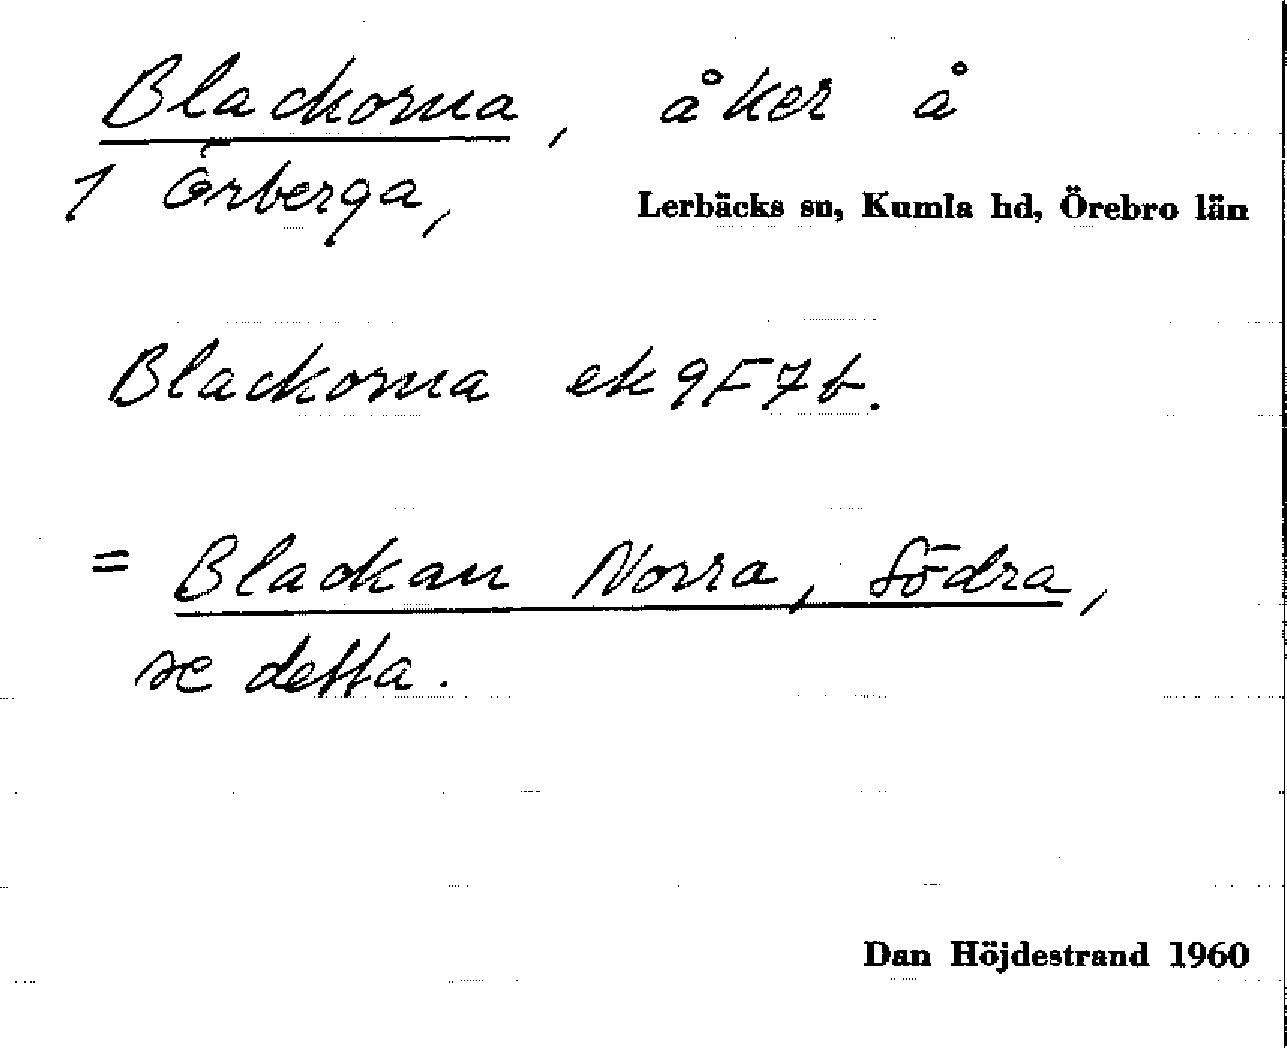 Blackorna, åker å
1 Örberga,
Lerbäcks sn, Kumla hd, Örebro län
Blackorna ek 9F7f.
= Blackan Norra, Södra,
se detta.
Dan Höjdestrand 1960